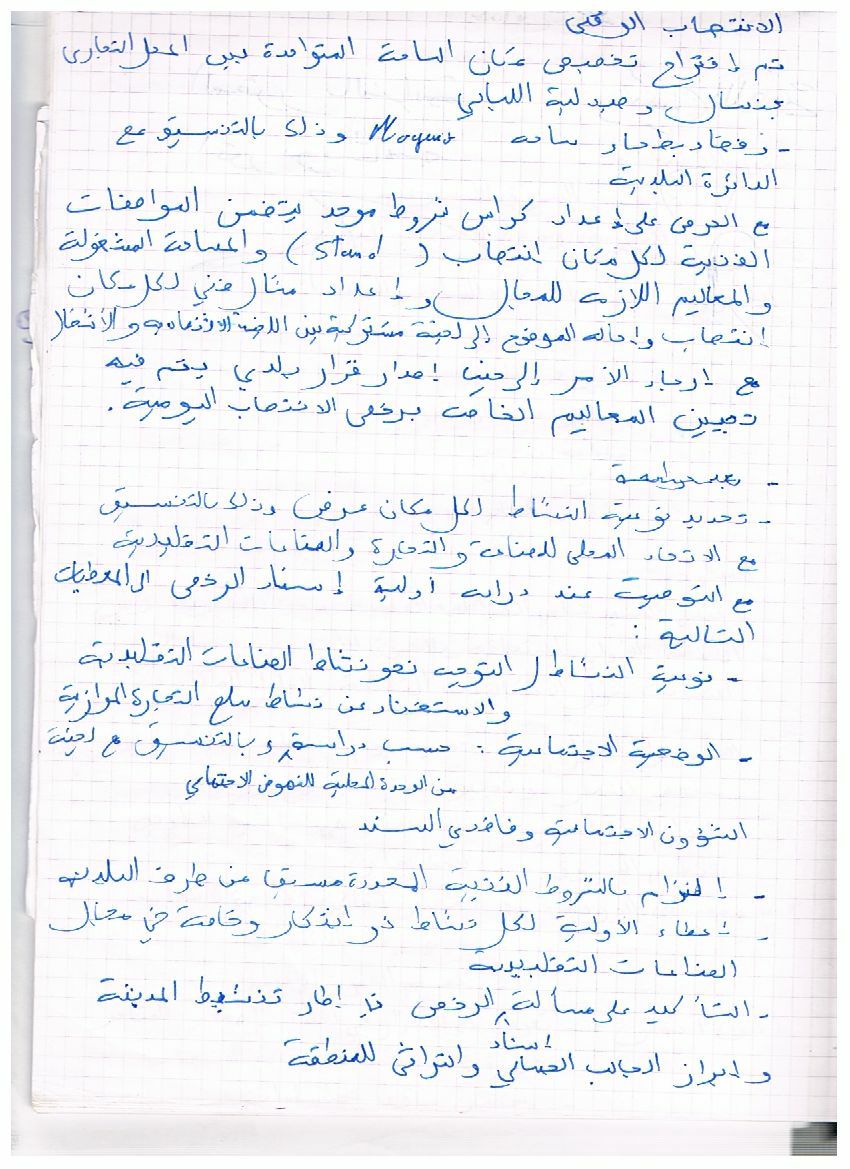 الانتصاب الوقتي
تم إقتراح تخصيص مكان الساحة المتواجدة بين المحل التجاري
جنسال وصيدلية اللباني
- زنقة بطحاء ساحة وذلك بالتنسيق مع
الدائرة البلدية
مع الحرص على إعداد كراس شروط موحد يتضمن المواصفات
الفنية لكل مكان انتصاب (Stand) والمساحة المشغولة
والمعاليم اللازمة للمجال وإعداد مثال فني لكل مكان
إنتصاب وإحالة الموضوع إلى لجنة مشتركة بين اللجنة الاقتصادية والأشغال
مع إرجاء الأمر إلى حين إصدار قرار بلدي يتم فيه
تبيين المعاليم الخاصة برخص الانتصاب اليومية.
-
- تحديد نوعية النشاط لكل مكان عرض وذلك بالتنسيق
مع الاتحاد المحلي للصناعة والتجارة والصناعات التقليدية
مع التوصية عند دراسة أولية إسناد الرخص الى المعطيات
التالية :
- نوعية النشاط / التوجه نحو نشاط الصناعات التقليدية
والاستغناء عن نشاط سلع التجارة الموازية
- الوضعية الاجتماعية : حسب دراسة وبالتنسيق مع لجنة
من الوحدة المحلية للنهوض الاجتماعي
الشؤون الاجتماعية وفاقدي السند
- إلتزام بالشروط الفنية المحددة مسبقا من طرف البلدية
- إعطاء الأولية لكل نشاط ذو ابتكار وخاصة في مجال
الصناعات التقليدية
- التأكيد على مسألة إسناد الرخص في إطار تنشيط المدينة
وابراز الجانب الجمالي والتراثي للمنطقة